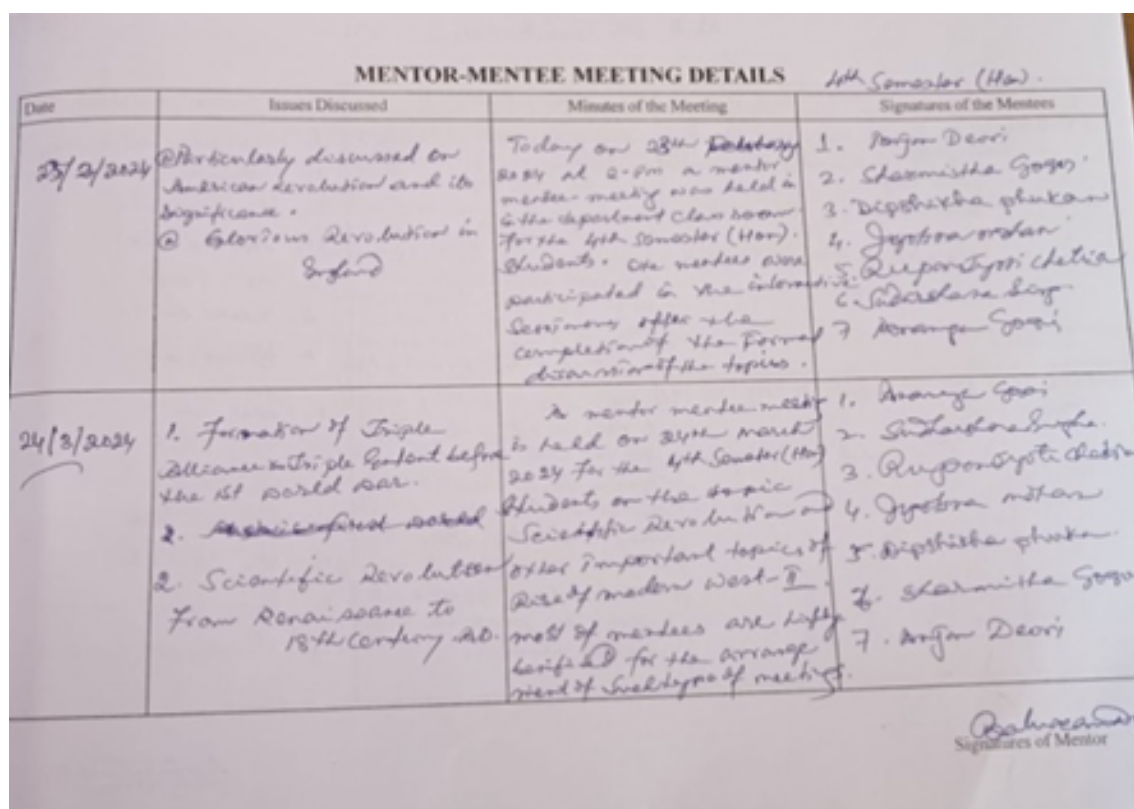 MENTOR-MENTEE MEETING DETAILS
4th Semester (Hon).
Date
Issues Discussed
Minutes of the Meeting
Signatures of the Mentees
23/2/2024
@ Particularly discussed on
American Revolution and its
Significance.
@ Glorious Revolution in
England
Today on 23th
2024 at 2-pm a mentor
mentee meeting was held in
the department class room
for the 4th Semester (Hon).
Students. mentees were
participated in the
after the
completion of the Formal
discussion of the topics.
1. Deori
2. Sharmistha Gogoi
3. Dipshikha phukan
4.
5. Ruponjyoti chetia
6.
7 Gogoi
24/3/2024
1. Formation of Triple
Alliance Triple Entent before
the 1st world war.
2.
2. Scientific Revolution
From Renaissance to
18th Century A.D.
A mentor mentee meeting
is held on 24th March
2024 for the 4th Semester (Hon)
Students on the topic
Scientific Revolution and
other important topics of
Rise of modern West-II.
most of mentees are
for the arrange
ment of Such type of meetings.
1. Gogoi
2.
3. Ruponjyoti chetia
4.
5. Dipshikha phukan.
6. Sharmistha Gogoi
7. Deori
Signatures of Mentor